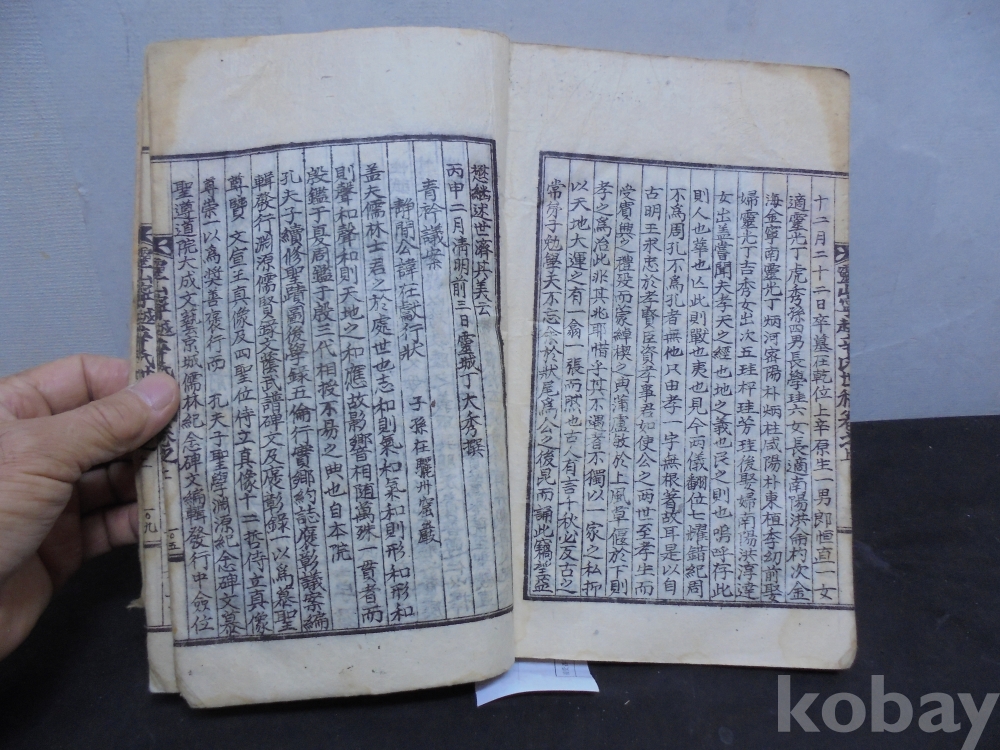 十二月二十二日卒墓仕乾位上辛原生一男郎恒直一女
適靈光丁虎秀孫四男長學珪六女長適南陽洪侖杓次金
海金寧南靈光丁炳河密陽朴炳柱咸陽朴東桓李幼前娶
婦靈光丁吉秀女出次五珪枰珪芳珪後娶婦南陽洪淳達
女出盖嘗聞夫孝天之經也地之義也民之則也嗚呼存此
則人也華也亡此則戰也夷也見今兩儀翻位七燿錯紀周
不爲周孔不爲孔者無他只由孝一字無根著故耳是以自
古明王求忠於孝賢臣資孝事君如使公之兩世至孝生而
受賓興之禮歿而蒙綽楔之典蒲盧敏於上風草偃於下則
孝之爲治此非其兆耶惜乎其不遇者不獨以一家之私抑
以天地大運之有一翕一張而然也古人有言千秋必友古之
常芽子勉學天不忘余於狀尾爲公之後昆而誦此篇望益
懋繼述世濟其美云
丙申二月淸明前三日靈城丁大秀撰
靑衿議案
靜聞公諱在獻行狀 子孫在驪州密巖
盖夫儒林士君之於處世也志和則氣和氣和則形和形和
則聲和聲和則天地之和應故影響相通萬殊一貫者而
殷鑑于夏周鑑于殷三代相授不易之典也自本院
孔夫子續修聖蹟圖後學錄五倫行實鄕約誌褒彰議案編
輯發行淵源儒賢錄文蔭武譜碑文及褒彰錄一以爲慕聖
尊賢 文宣王眞像及四聖位侍立眞像十二哲侍立眞像
尊崇一以爲奬善褒行而 孔夫子聖學淵源紀念碑文慕
聖尊道院大成文藝京城儒林紀念碑文編輯發行中僉位
一〇五
一〇九